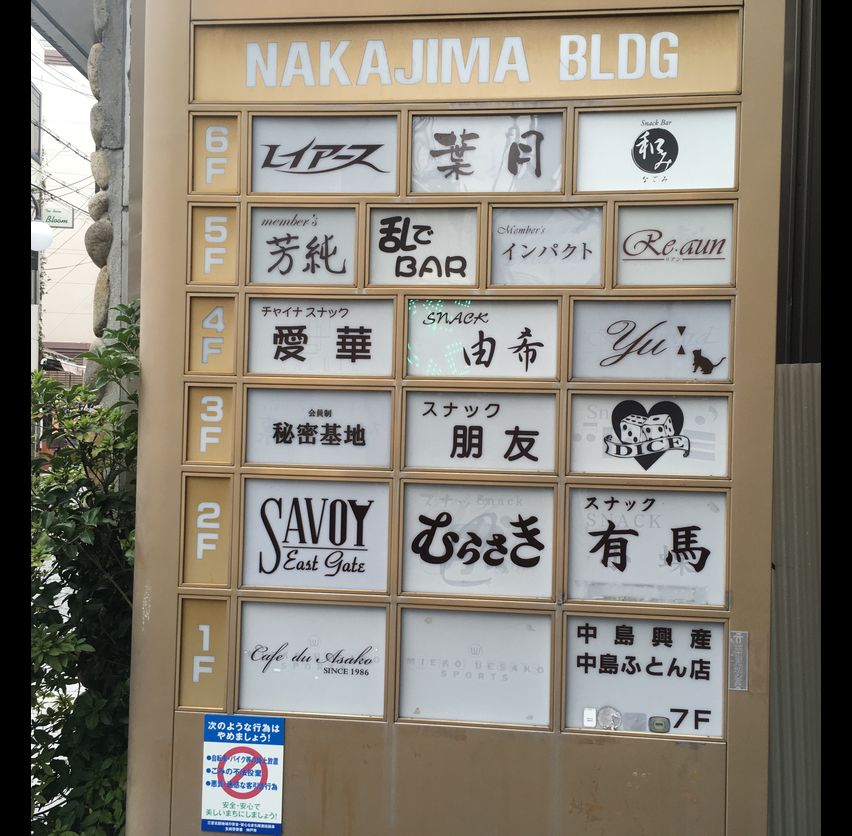 NAKAJIMA BLDG
6F
レイアース
葉月
Snack Bar
和み
なごみ
5F
member's
芳純
乱で
BAR
Member's
インパクト
Re·aun
リアン
4F
チャイナ スナック
愛華
SNACK
由希
Yu
3F
会員制
秘密基地
スナック
朋友
DICE
2F
SAVOY
East Gate
むらさき
スナック
有馬
1F
Cafe du Asako
SINCE 1986
MIEKO UESAKO
SPORTS
中島興産
中島ふとん店
7F
次のような行為は
やめましょう!
●自転車・バイク等の路上放置
●ごみの不法投棄
●悪質・迷惑な客引き行為
安全・安心で
美しいまちにしましょう!
Bloom